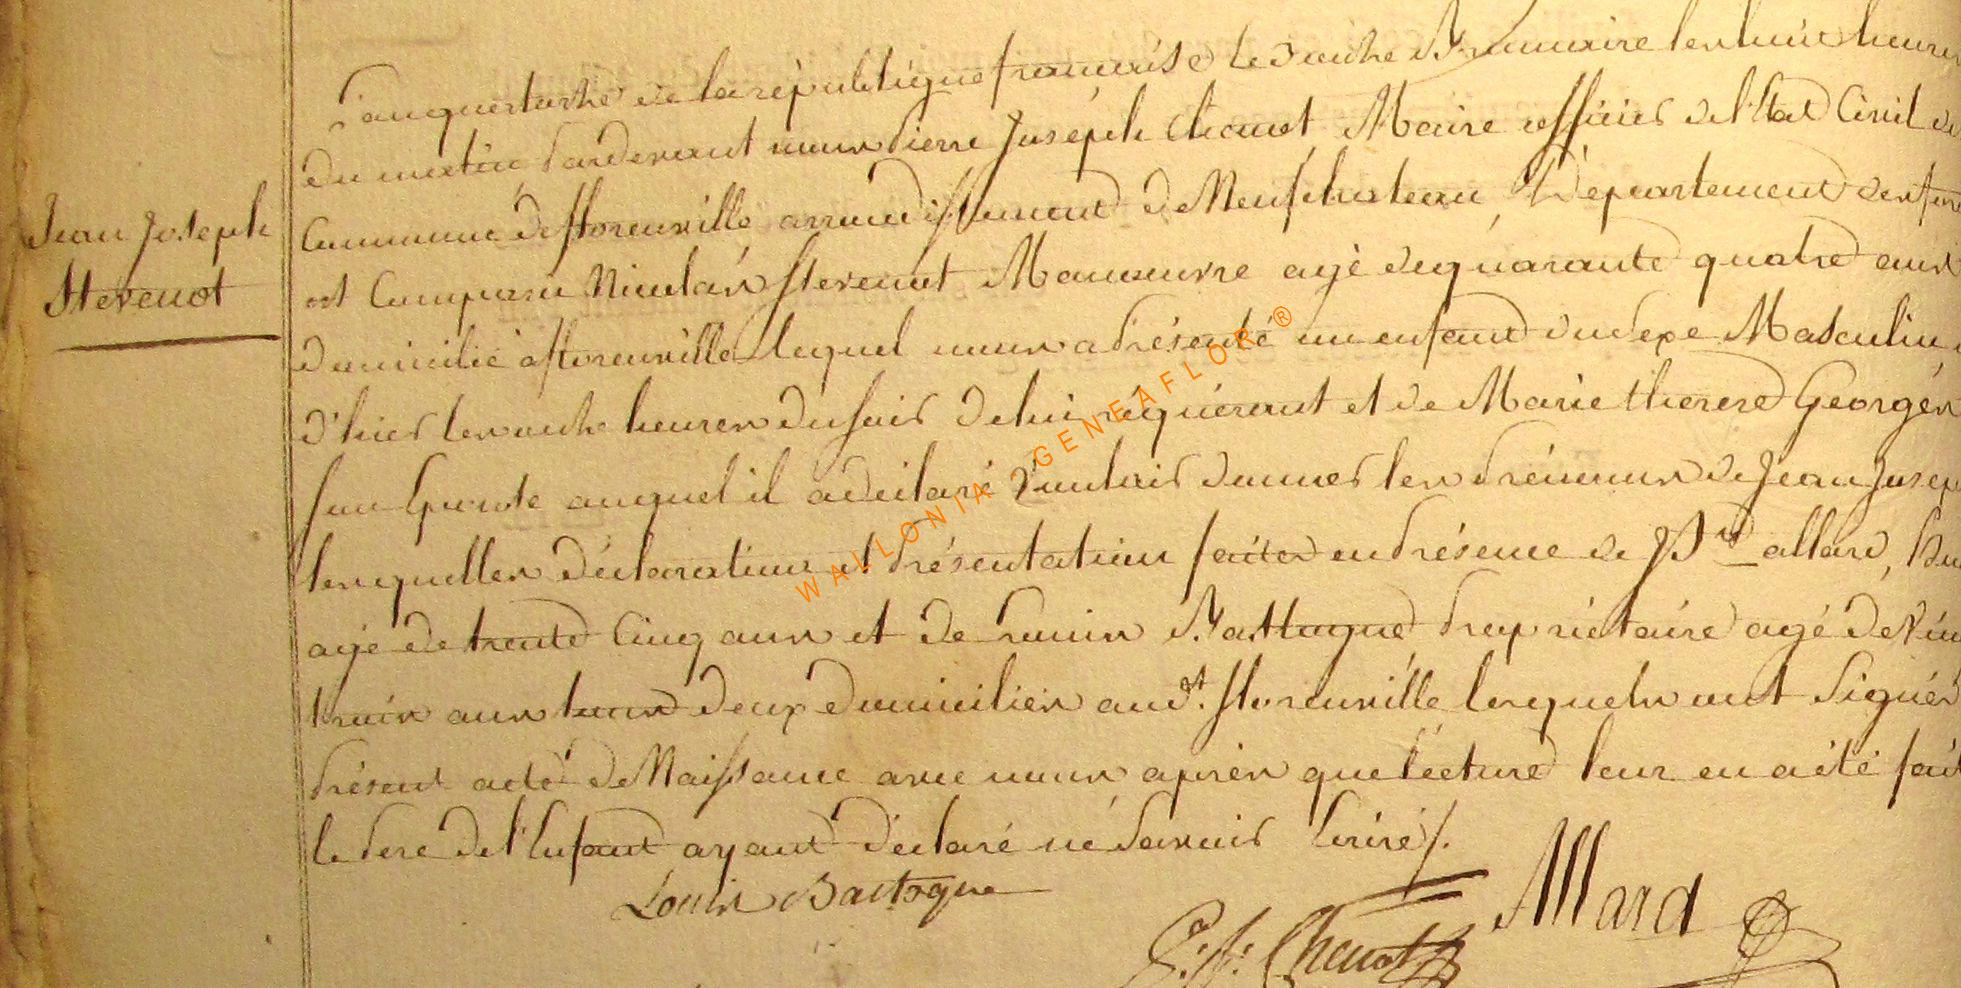 Jean Joseph
Stevenot
L'an quatorze de la république francaise le douze Brumaire les huit heures
du matin pardevant nous Pierre Joseph Chenot Maire officier de l'Etat Civil de
Commune de floreuville arrondissement de Neufchateau, Département des for
est Comparu Nicolas stevenot Manoeuvre agé de quarante quatre ans
domicilié a floreuville lequel nous a présenté un enfant du sexe Masculin
d'hier les onze heures du soir de lui réquérant et de Marie therese Georges
son Epouse auquel il a déclaré vouloir donner les prénoms de Jean Josep
lesquelles déclaration et présentation faites en présence de allard,
agé de trente Cinq ans et de Louis Bastogne propriétaire agé de vin
trois ans tous deux domiciliés aud.t floreuville lesquels ont signés
présent acte de Naissance avec nous après que lecture leur en a été fait
le Pere de l'Enfant ayant déclaré né savoir Ecrire/.
Louis Bastogne
Allard
P: J: Chenot
WALLONIA GENEAFLOR ®